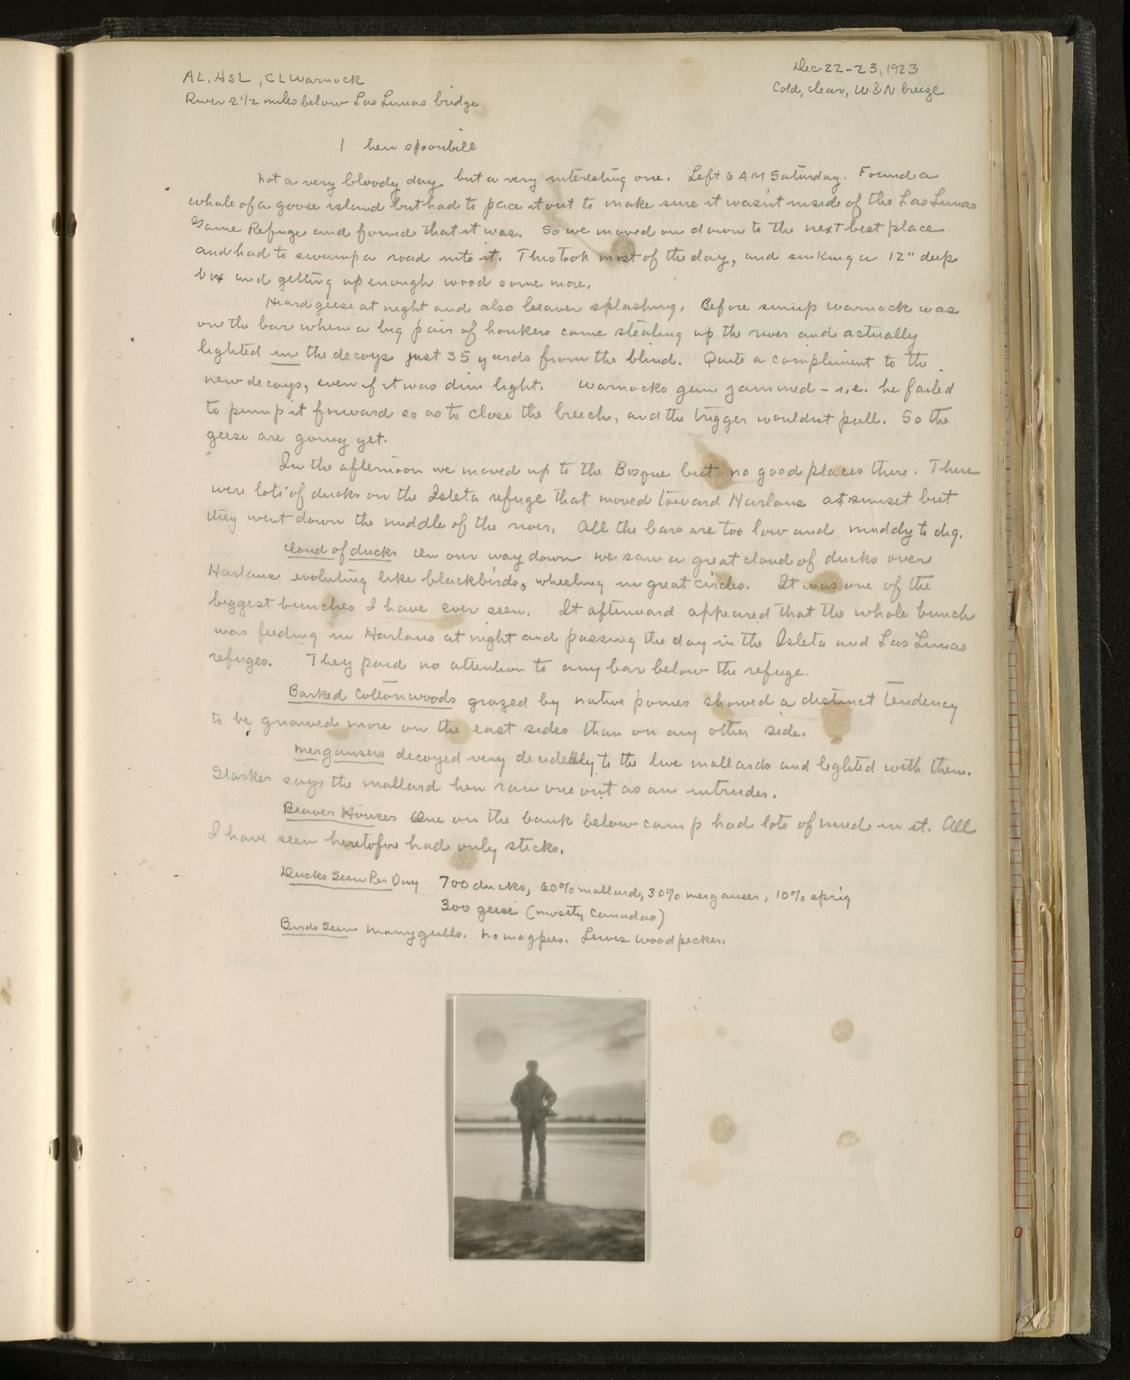 AL, HSL, CL Warnock
Dec 22-23, 1923
River 2 1/2 miles below Las Lunas bridge
Cold, clear, W & N breeze
1 hen spoonbill
Not a very bloody day but a very interesting one. Left 6 AM Saturday. Found a
whale of a goose island but had to pace it out to make sure it wasn't inside of the Las Lunas
Game Refuge and found that it was. So we moved on down to the next best place
and had to swamp a road into it. This took most of the day, and sinking a 12" deep
box and getting up enough wood some more.
Heard geese at night and also beaver splashing. Before sunup Warnock was
on the bar when a big pair of honkers came stealing up the river and actually
lighted in the decoys just 35 yards from the blind. Quite a compliment to the
new decoys, even if it was dim light. Warnocks gun jammed - i.e. he failed
to pump it forward so as to close the breech, and the trigger wouldnt pull. So the
geese are going yet.
In the afternoon we moved up to the Bosque but no good places there. There
were lots of ducks on the Isleta refuge that moved toward Harlans at sunset but
they went down the middle of the river. All the bars are too low and muddy to dig.
Cloud of ducks On our way down we saw a great cloud of ducks over
Harlans evoluting like blackbirds, wheeling in great circles. It was one of the
biggest bunches I have ever seen. It afterward appeared that the whole bunch
was feeding in Harlans at night and passing the day in the Isleta and Las Lunas
refuges. They paid no attention to any bar below the refuge.
Barked Cottonwoods grazed by native ponies showed a distinct tendency
to be gnawed more on the east sides than on any other side.
Mergansers decoyed very decidedly to the live mallards and lighted with them.
Starker says the mallard hen ran one out as an intruder.
Beaver Houses One on the bank below camp had lots of mud in it. All
I have seen heretofore had only sticks.
Ducks Seen Per Day 700 ducks, 60% mallards, 30% merganser, 10% sprig
300 geese (mostly Canadas)
Birds Seen Many gulls. No magpies. Lewis woodpecker.